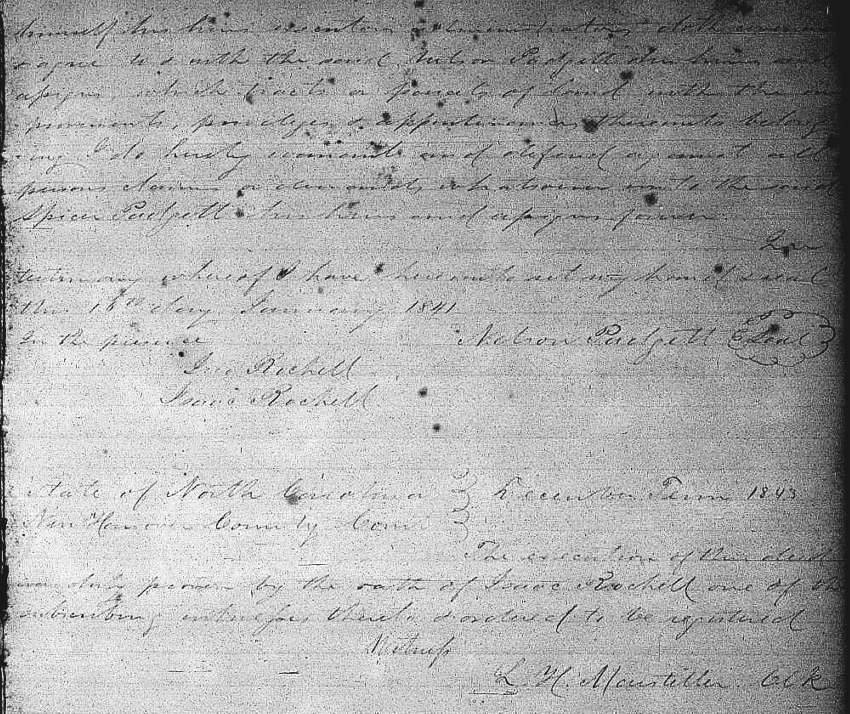 himself his heirs executors administrators doth
& agree to & with the said Nelson Padgett his heirs and
assigns which tracts or parcels of land with the
privileges & appurtenances thereunto belong
ing I do hereby warrant and defend against all
persons claims or demands whatsoever unto the said
Spicer Padgett his heirs and assigns forever
In
testimony whereof I have hereunto set my hand & seal
this 18th day January 1841
In the presence Nelson Padgett Seal
Jno Rochell
Isaac Rochell
State of North Carolina December Term 1843
New Hanover County Court
The execution of this deed
was duly proven by the oath of Isaac Rochell one of the
subscribing witnesses thereto & ordered to be registered
Witness
L. H. Marsteller Clk